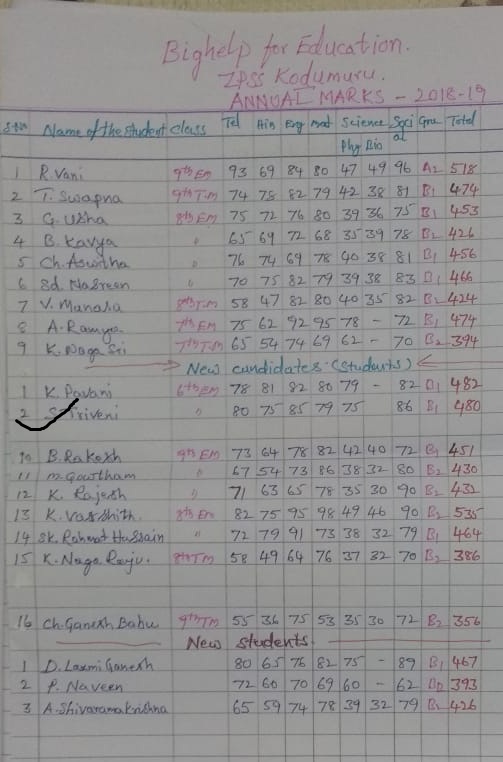 Bighelp for Education.
ZPSS Kodumuru.
ANNUAL MARKS - 2018-19
S.No Name of the student class Tel Hin Eng mat Science Soci al Gra Total
Phy Bio
1 R. Vani 9th Em 93 69 84 80 47 49 96 A2 518
2 T. Swapna 9th T.m 74 78 82 79 42 38 81 B1 474
3 G. Usha 8th Em 75 72 76 80 39 36 75 B1 453
4 B. Kavya " 65 69 72 68 35 39 78 B2 426
5 Ch. Aswitha " 76 74 69 78 40 38 81 B1 456
6 Sd. Nasreen " 70 75 82 79 39 38 83 B1 466
7 V. Manasa 8th T.m 58 47 82 80 40 35 82 B2 424
8 A. Ramya 7th Em 75 62 92 95 78 - 72 B1 474
9 K. Naga Sri 7th T.m 65 54 74 69 62 - 70 B2 394
New candidates (students)
1 K. Pavani 6th Em 78 81 82 80 79 - 82 B1 482
2 S. Triveni " 80 75 85 79 75 86 B1 480
10 B. Rakesh 9th Em 73 64 78 82 42 40 72 B1 451
11 m. Gowtham " 67 54 73 86 38 32 80 B2 430
12 K. Rajesh " 71 63 65 78 35 30 90 B2 432
13 K. Varshith 8th Em 82 75 95 98 49 46 90 535
14 Sk. Rahmat Hussain " 72 79 91 73 38 32 79 B1 464
15 K. Naga Raju. 8th TM 58 49 64 76 37 32 70 B2 386
16 Ch. Ganesh Babu 9th TM 55 36 75 53 35 30 72 B2 356
New students.
1 D. Laxmi Ganesh 80 65 76 82 75 - 89 B1 467
2 P. Naveen 72 60 70 69 60 - 62 393
3 A. Shivaramakrishna 65 59 74 78 39 32 79 B2 426